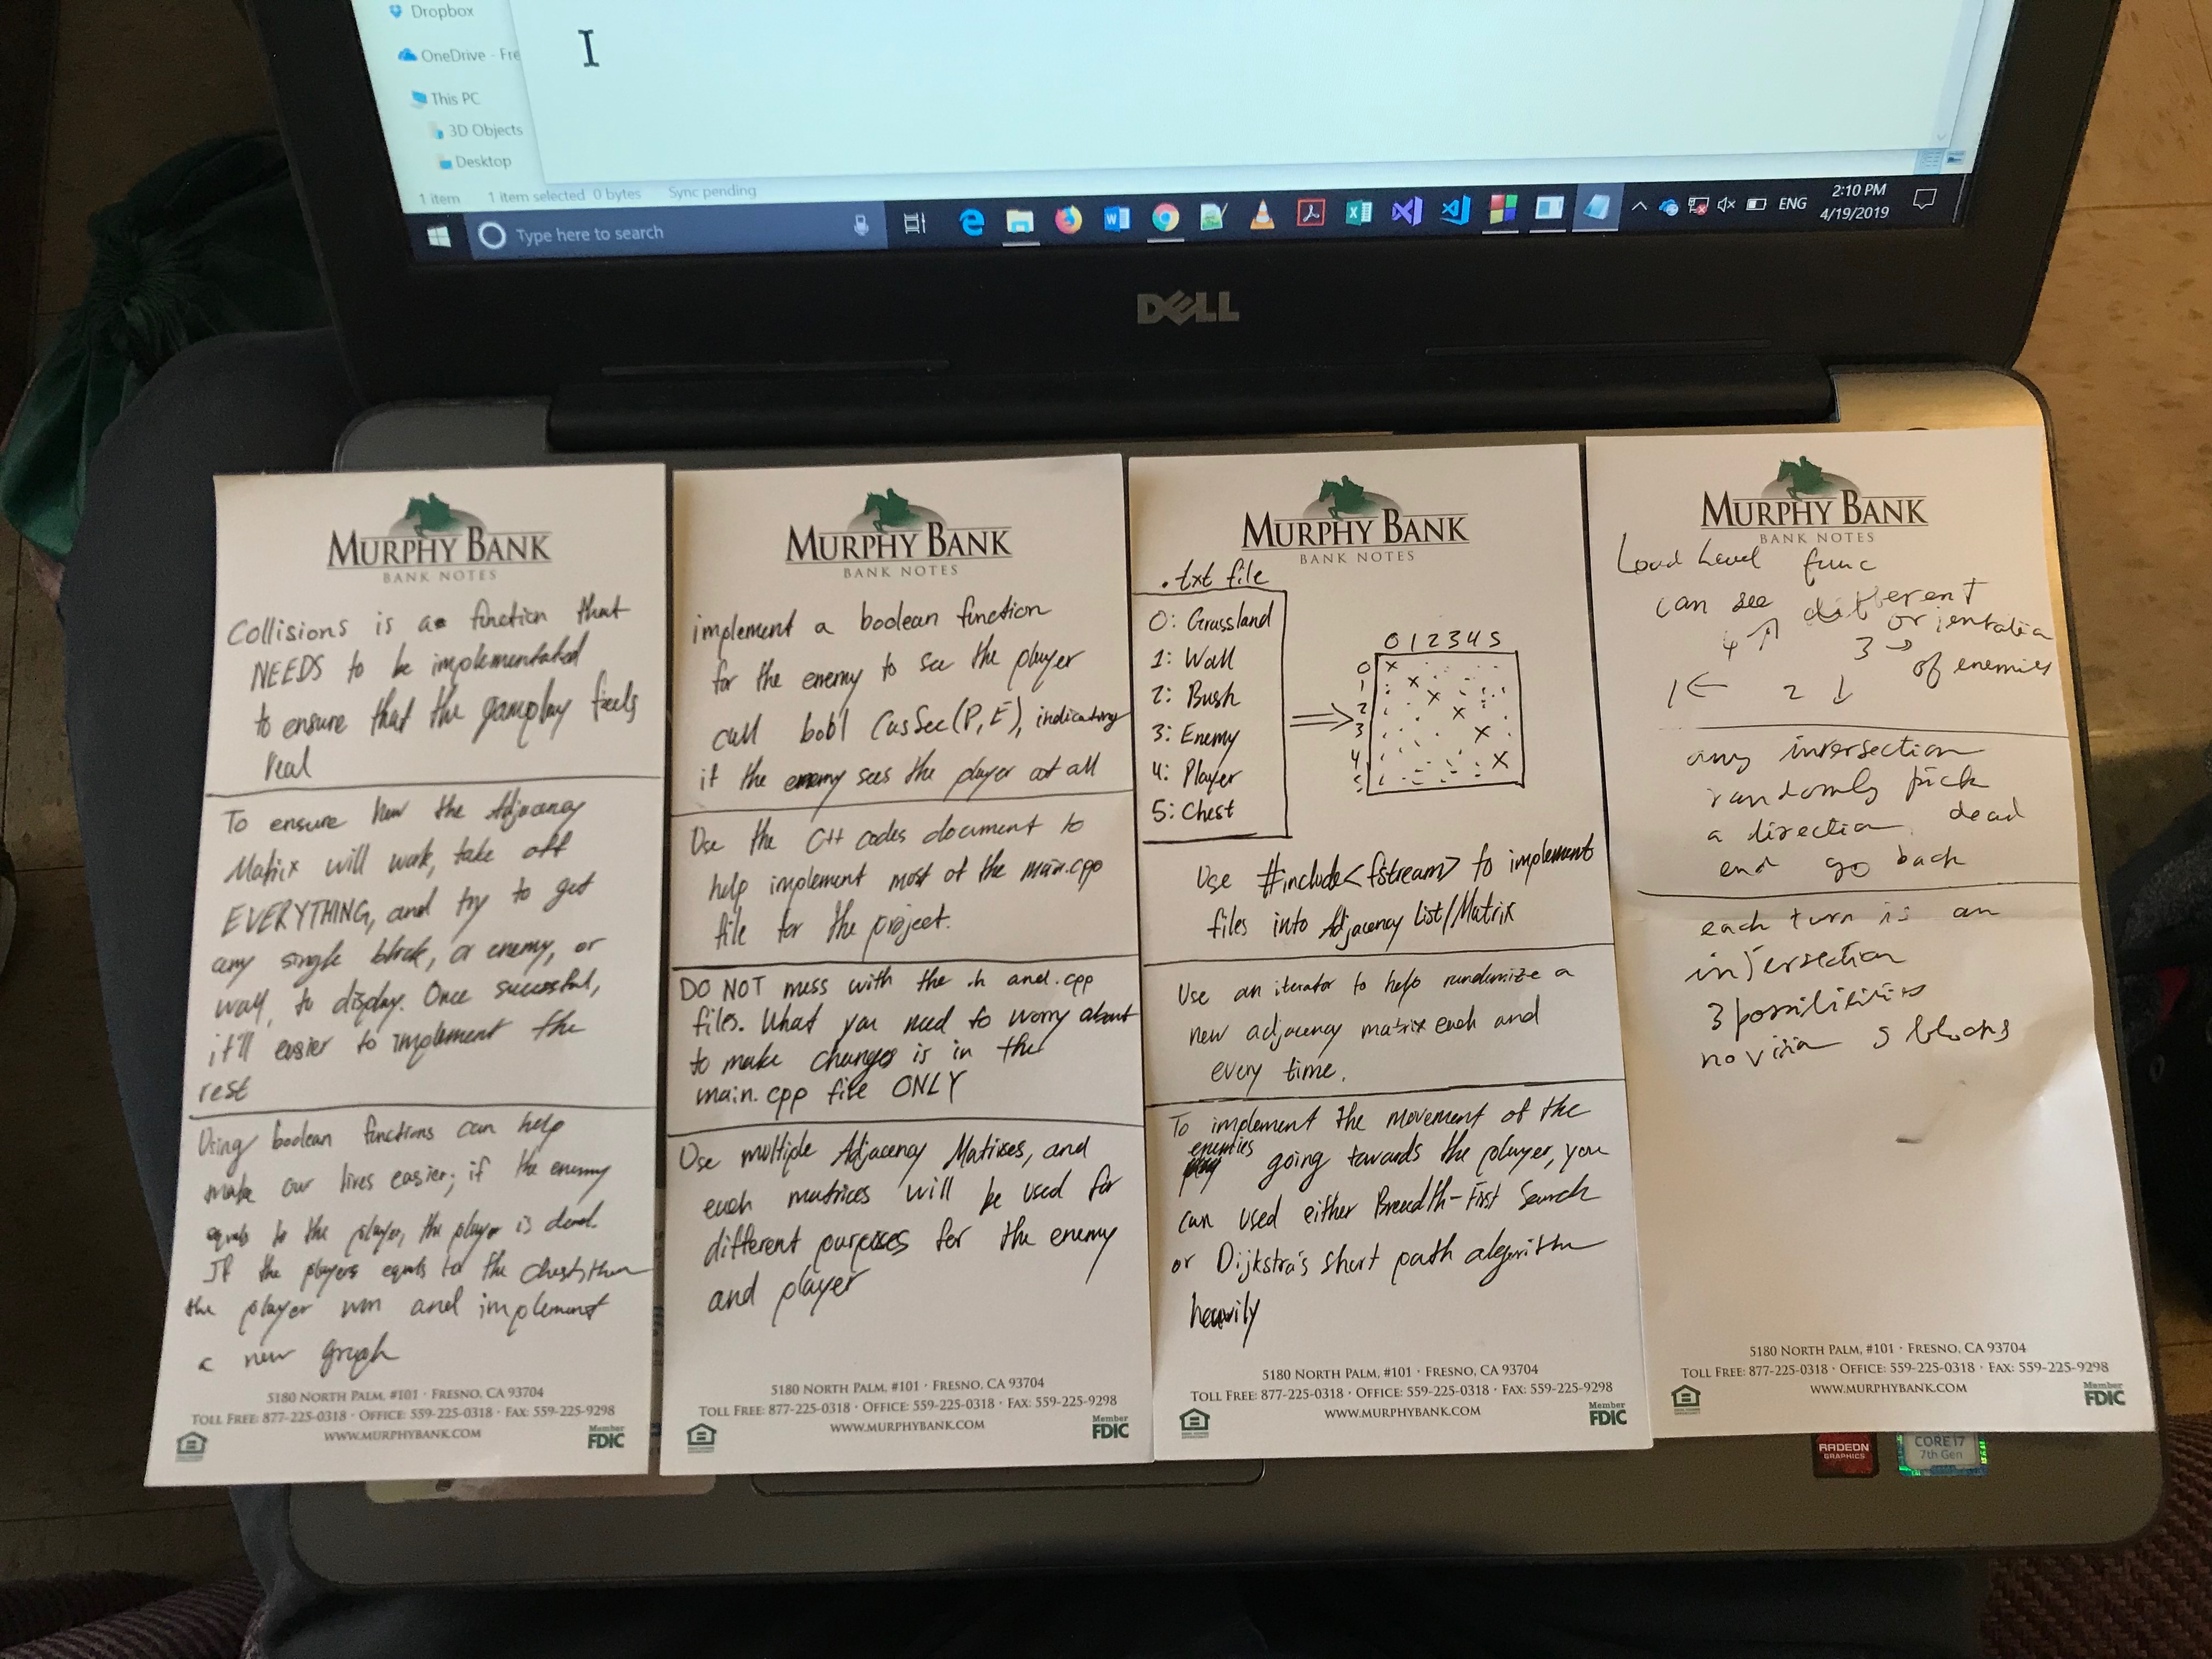 Dropbox
OneDrive - Fre
This PC
3D Objects
Desktop
1 item 1 item selected 0 bytes Sync pending
Type here to search
ENG
2:10 PM
4/19/2019
DELL
MURPHY BANK
BANK NOTES
Collisions is a function that
NEEDS to be implementated
to ensure that the gameplay feels
real
To ensure how the Adjacency
Matrix will work, take off
EVERYTHING, and try to get
any single block, or enemy, or
wall, to display. Once successful,
it'll easier to implement the
rest
Using boolean functions can help
make our lives easier; if the enemy
equals to the player, the player is dead.
If the players equals to the chest, then
the player win and implement
a new graph
5180 NORTH PALM, #101 · FRESNO, CA 93704
TOLL FREE: 877-225-0318 · OFFICE: 559-225-0318 · FAX: 559-225-9298
WWW.MURPHYBANK.COM
Member
FDIC
MURPHY BANK
BANK NOTES
implement a boolean function
for the enemy to see the player
call (P, E), indicating
if the enemy sees the player at all
Use the C++ codes document to
help implement most of the main.cpp
file for the project.
DO NOT mess with the .h and .cpp
files. What you need to worry about
to make changes is in the
main.cpp file ONLY
Use multiple Adjacency Matixes, and
each matrices will be used for
different purposes for the enemy
and player
5180 NORTH PALM, #101 · FRESNO, CA 93704
TOLL FREE: 877-225-0318 · OFFICE: 559-225-0318 · FAX: 559-225-9298
WWW.MURPHYBANK.COM
Member
FDIC
MURPHY BANK
BANK NOTES
.txt file
0: Grassland
1: Wall
2: Bush
3: Enemy
4: Player
5: Chest
0 1 2 3 4 5
0 x
1 x
2 x
3 x
4 x
5 x
Use #include<fstream> to implement
files into Adjacency List/Matrix
Use an iterator to help randomize a
new adjacency matrix each and
every time.
To implement the movement of the
enemies
going towards the player, you
can used either Breadth-First Search
or Dijkstra's short path algorithm
heavily
5180 NORTH PALM, #101 · FRESNO, CA 93704
TOLL FREE: 877-225-0318 · OFFICE: 559-225-0318 · FAX: 559-225-9298
WWW.MURPHYBANK.COM
Member
FDIC
MURPHY BANK
BANK NOTES
Load Level func
can see different
orientation
4 ↑ 3 → of enemies
1 ← 2 ↓
any intersection
randomly pick
a direction, dead
end go back
each turn is an
intersection
3 possibilities
5 blocks
5180 NORTH PALM, #101 · FRESNO, CA 93704
TOLL FREE: 877-225-0318 · OFFICE: 559-225-0318 · FAX: 559-225-9298
WWW.MURPHYBANK.COM
Member
FDIC
RADEON
GRAPHICS
CORE i7
7th Gen